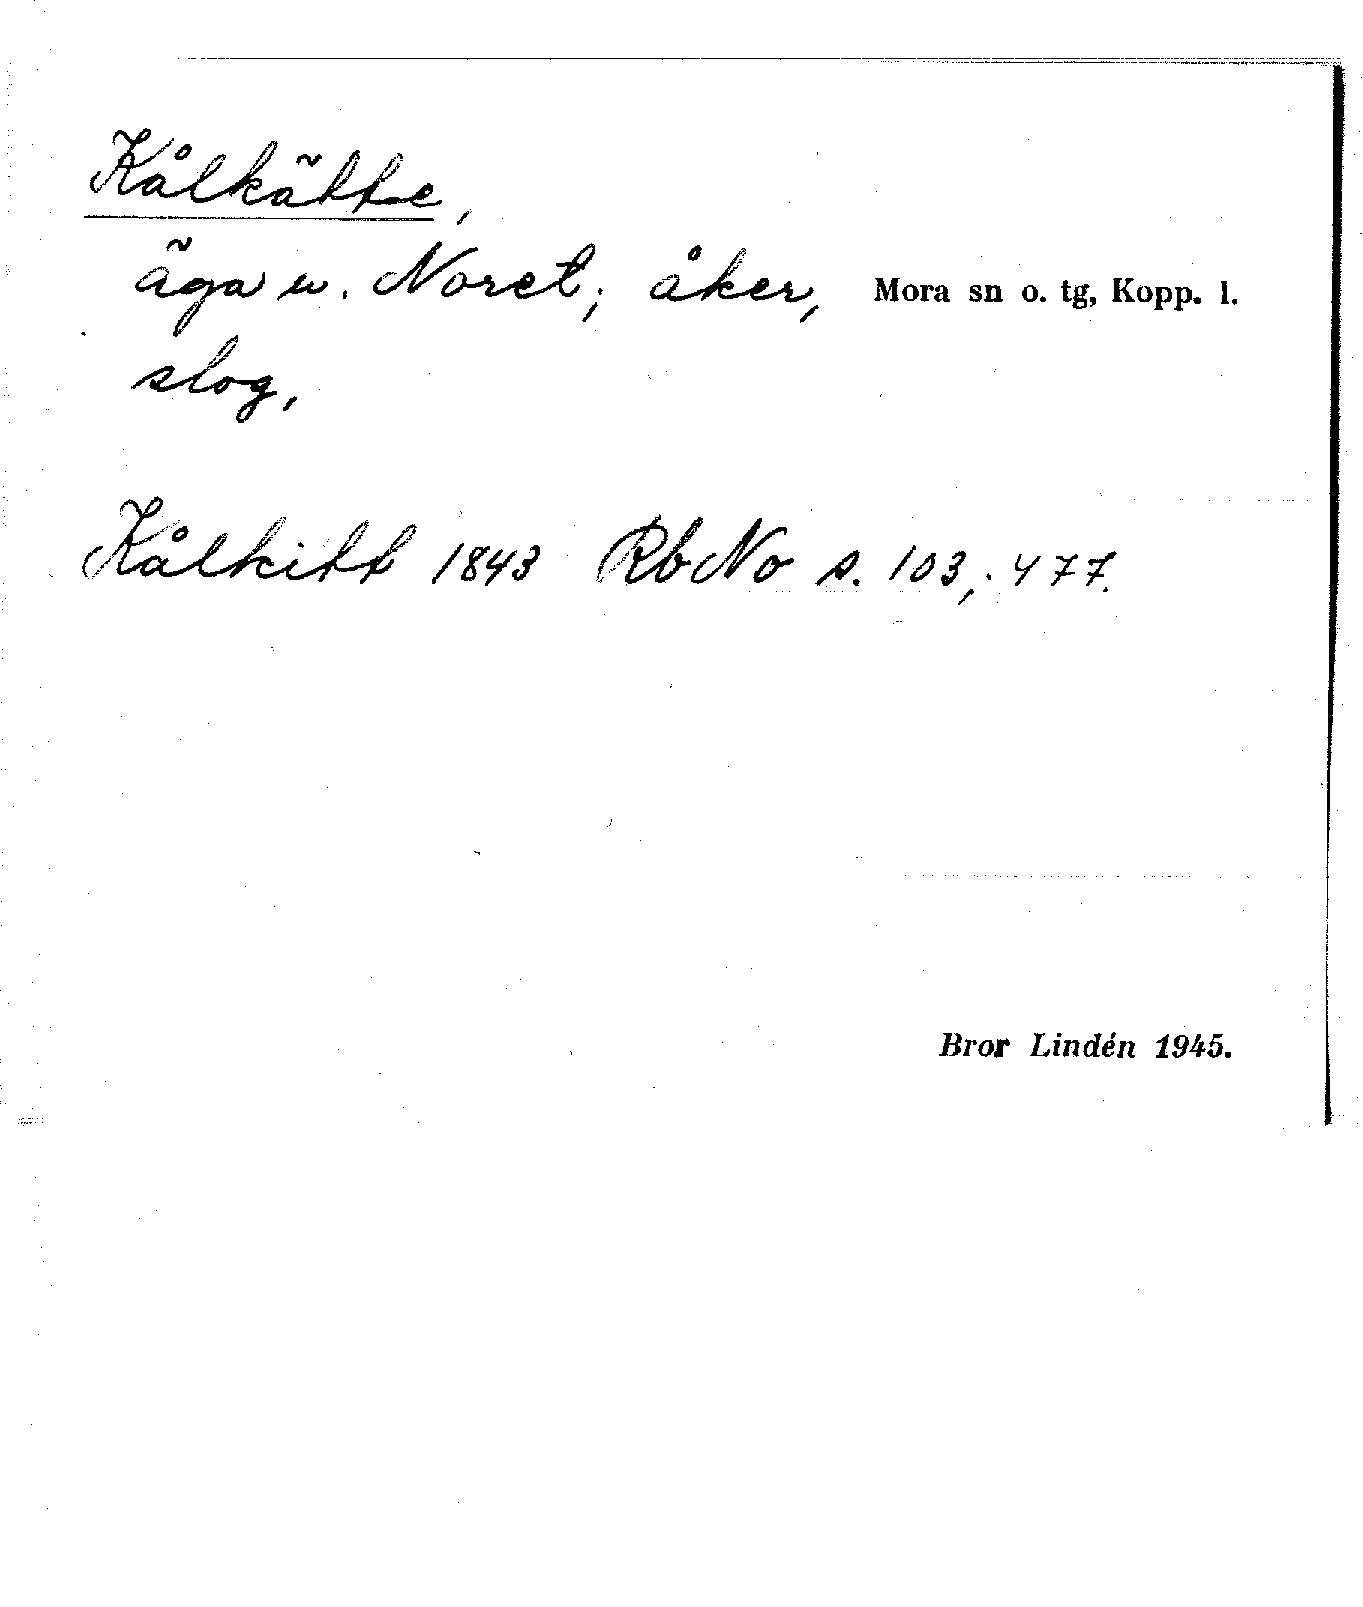 Kålkätte,
äga u. Noret; åker, Mora sn o. tg, Kopp. l.
slog,
Kålkitt 1843 RbNo s. 103, 477.
Bror Lindén 1945.